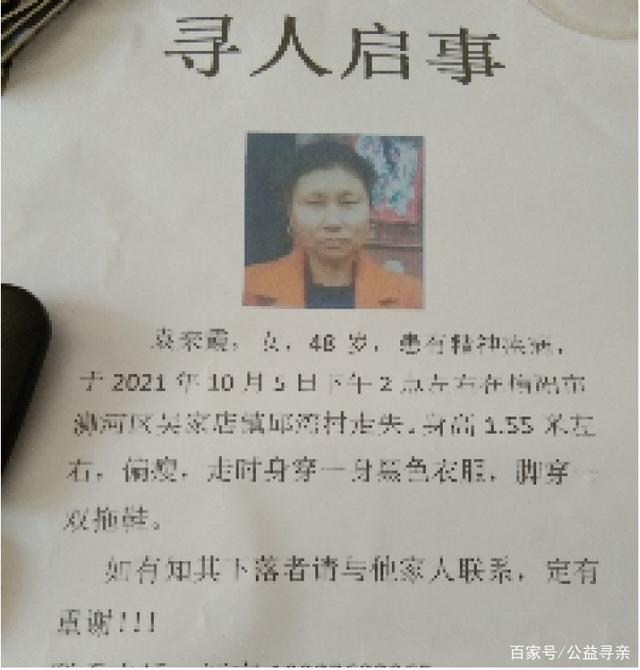 寻人启事
霞，女，48 岁，患有精神疾病，
于 2021 年 10 月 5 日下午 2 点左右在
浉河区吴家店镇邱湾村走失。身高 1.55 米左
右，偏瘦，走时身穿一身黑色衣服，脚穿一
双拖鞋。
如有知其下落者请与他家人联系，定有
重谢!!!
百家号/公益寻亲